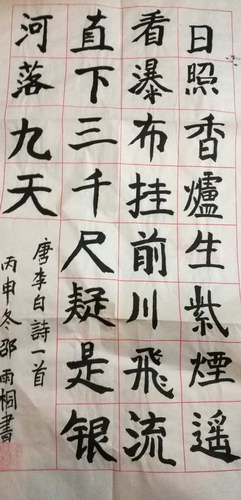 日照香爐生紫煙遥
看瀑布挂前川飛流
直下三千尺疑是银
河落九天
唐李白詩一首
丙申冬邵雨桐書